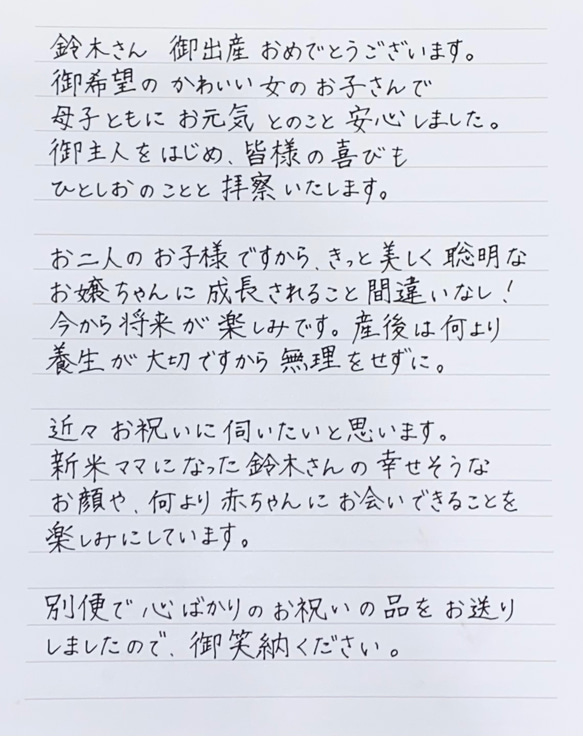 鈴木さん 御出産 おめでとうございます。
御希望の かわいい 女の お子さんで
母子ともに お元気 とのこと 安心しました。
御主人をはじめ、皆様の喜びも
ひとしおのことと 拝察いたします。
お二人の お子様ですから、きっと 美しく 聡明な
お嬢ちゃんに 成長されること 間違いなし！
今から 将来が 楽しみです。産後は 何より
養生が 大切ですから 無理をせずに。
近々 お祝いに 伺いたいと思います。
新米ママになった 鈴木さんの 幸せそうな
お顔や、何より 赤ちゃんに お会いできることを
楽しみにしています。
別便で 心ばかりのお祝いの品を お送り
しましたので、御笑納ください。